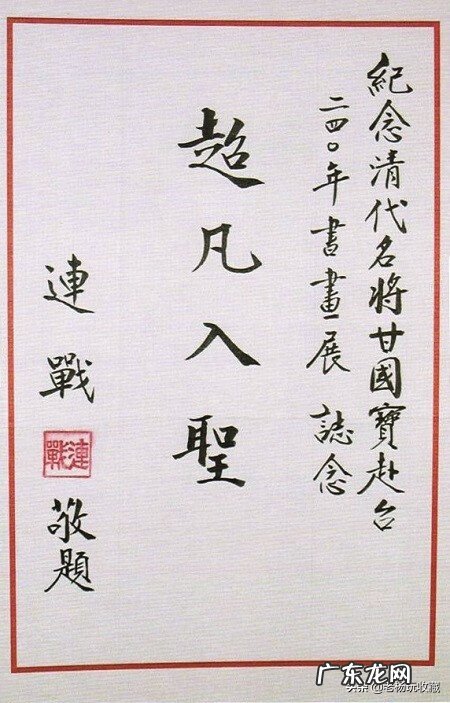 紀念清代名將甘國寶赴台
二四〇年書畫展 誌念
超凡入聖
連戰
連戰
敬題
广东龙网
头条 @老杨玩收藏